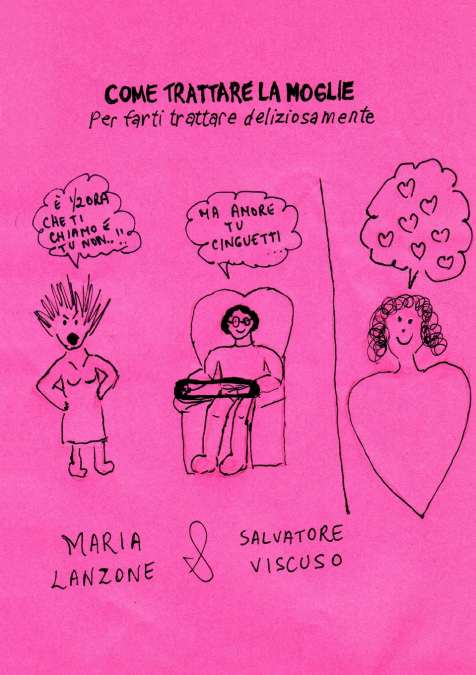 COME TRATTARE LA MOGLIE
Per farti trattare deliziosamente
È 1/2 ORA
CHE TI
CHIAMO E
TU NON..!!
MA AMORE
TU
CINGUETTI
...
MARIA
LANZONE
&
SALVATORE
VISCUSO